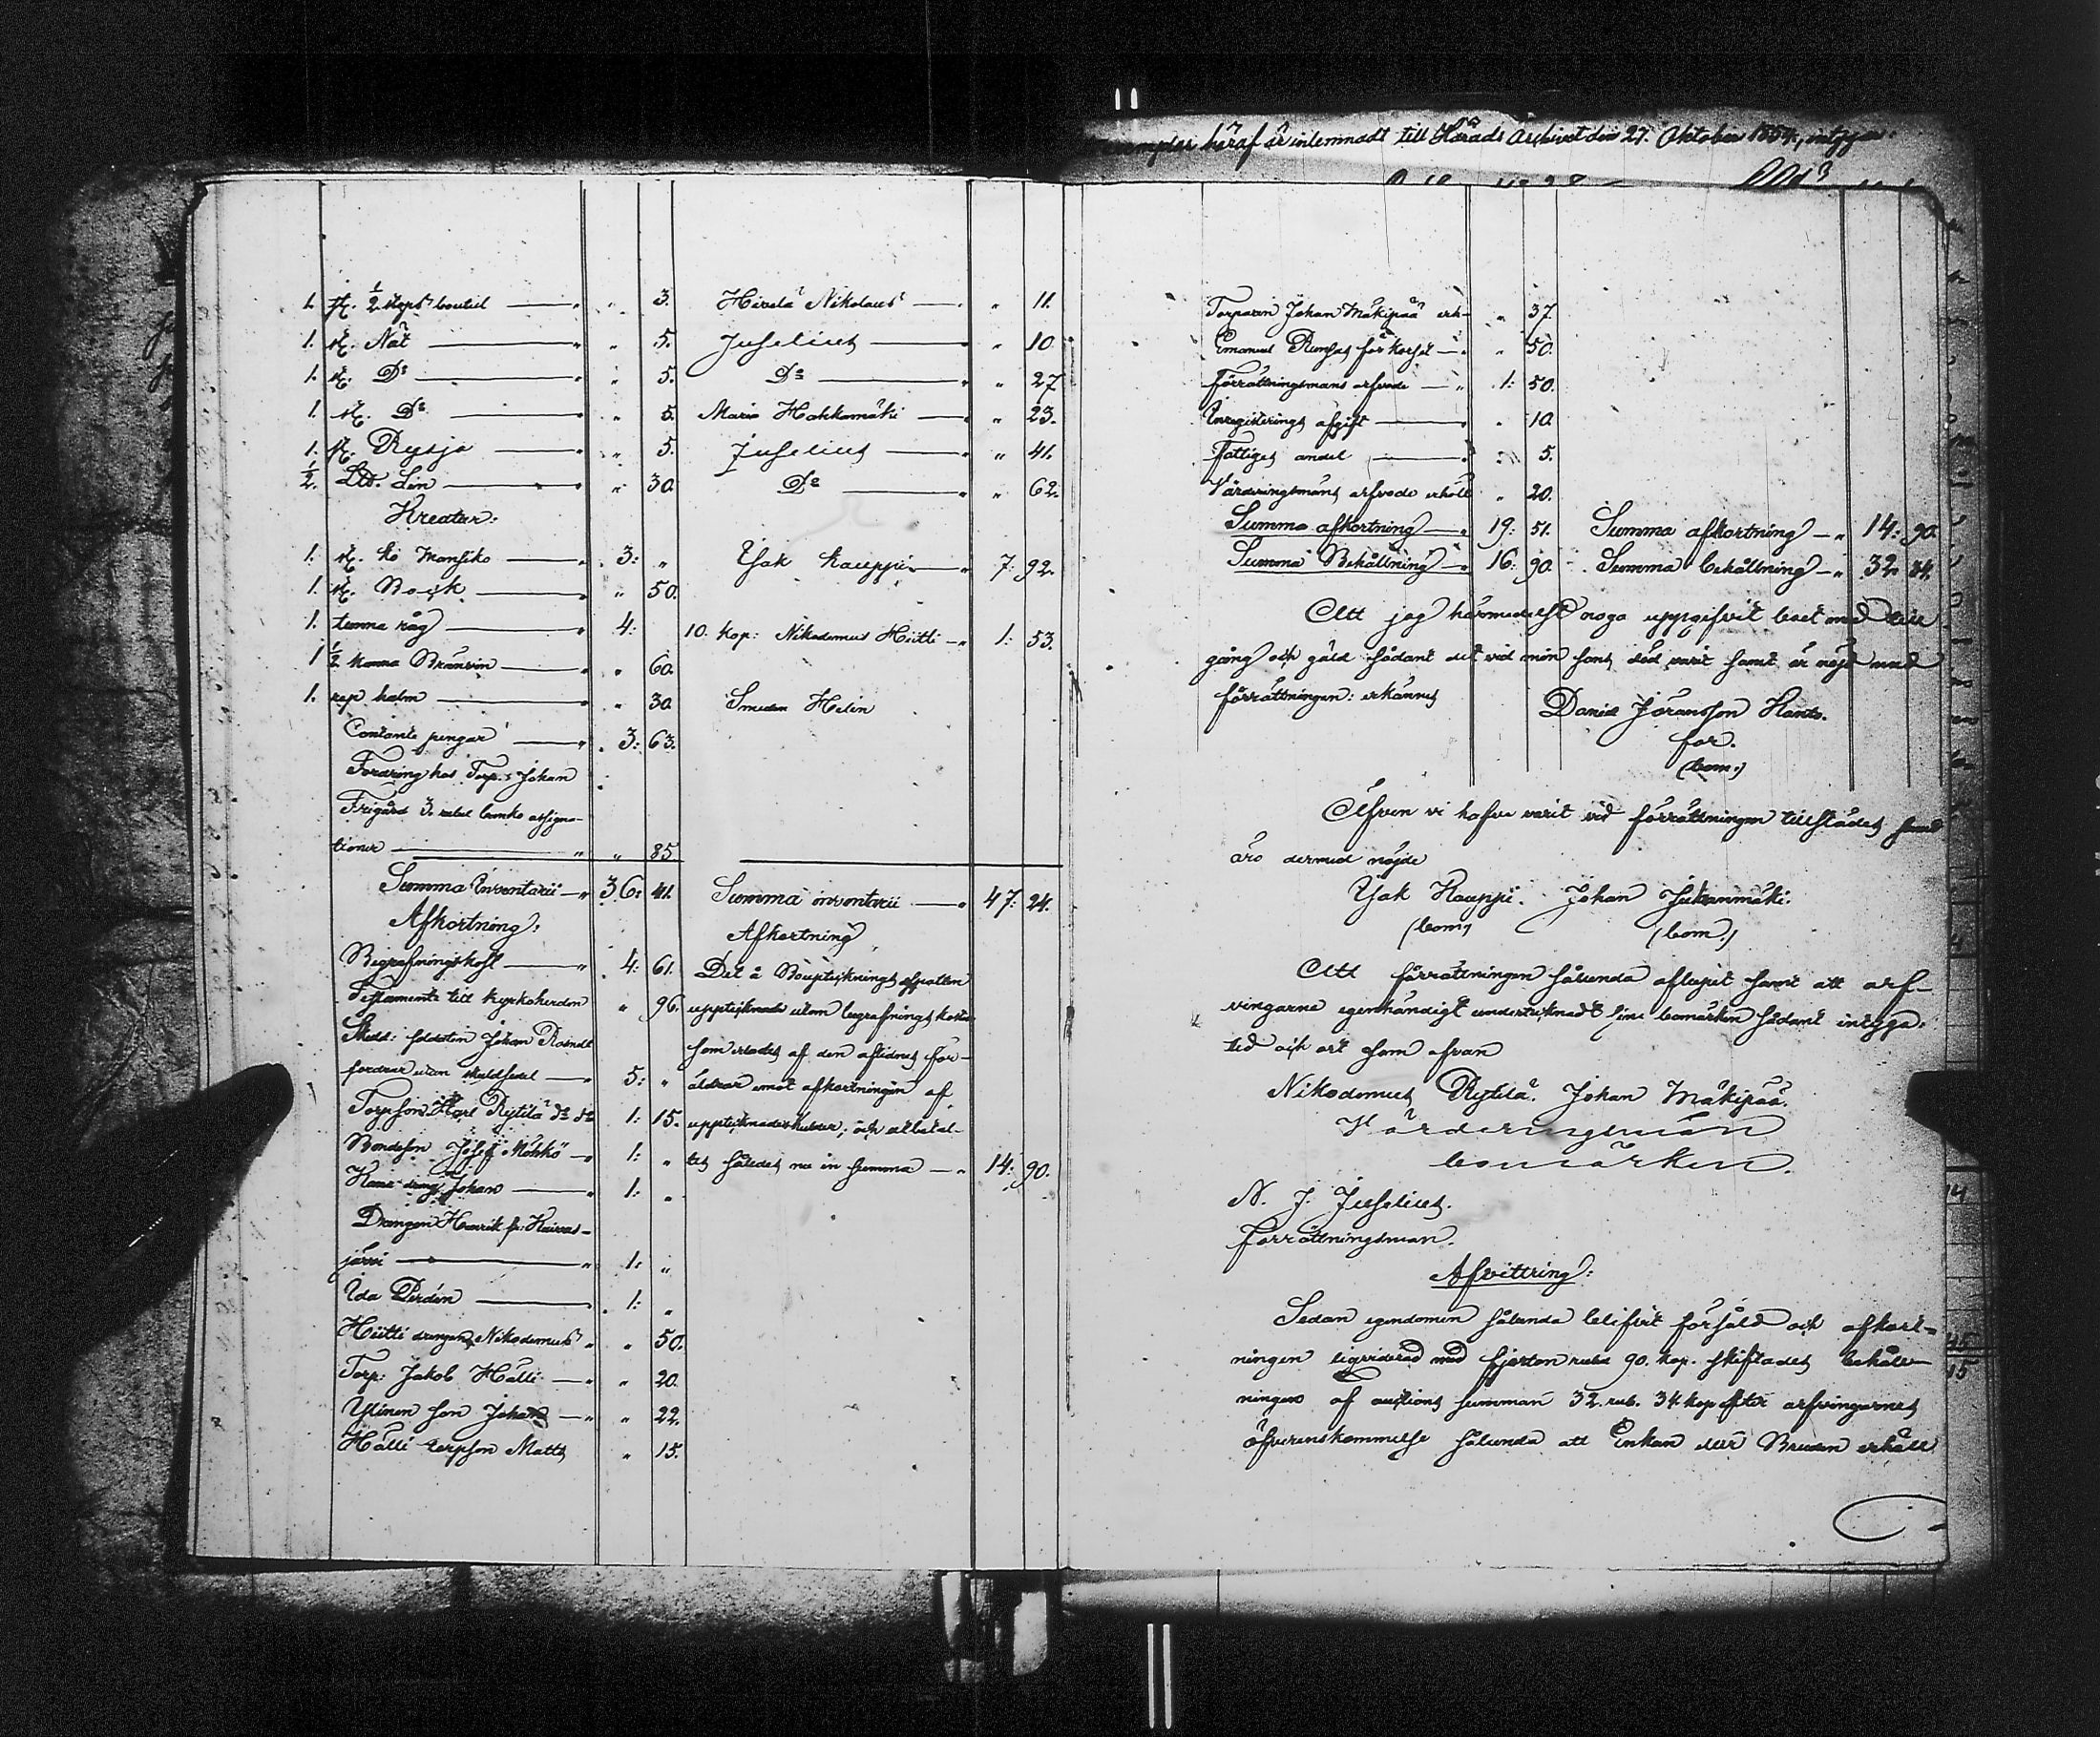 häraf är inlemnadt till Härads Archivet den 27. Oktober 1854, intygar
1. st. ½ stops bouteil — " " 3. Hirvelä Nikolaus — " 11.
1. st. Nät — " " 5. Juselius — " 10
1. st. D:o — " " 5. D:o — " 27
1. st. D:o — " " 5. Maria Hakkamäki — " 23.
1. st. Rysja — " " 5. Juselius — " 41.
½. Ltt. Lin — " " 30. D:o — " 62.
Kreatur:
1. st. ko Mansiko — " 3: " Isak Kauppi — " 7: 92.
1. st. Bock — " " 50.
1. tunna råg — " 4: 10. kop: Nikodemus Hütti — " 1: 53.
1½ kanna Bränvin — " " 60.
1. rep halm — " " 30. Smeden Helin
Contante pengar — " 3: 63.
Fordring hos Torp: Johan
Frigård 3. rubel banko assigna-
tioner — " " 85
Summa Inventarii — " 36: 41. Summa inventarii — " 47: 24.
Afkortning: Afkortning
Begrafningskost — " 4: 61. Det å Bouptekningsafsatten
Testamente till kyrkoherden " 96. uppteknade utom begrafnings kosten
soldaten Johan
som erlades af den aflidnes för-
fordrar utan skuldsedel — " 5: " äldrar emot afkortningen af
Torpson Karl Rytilä d:o d:o 1: 15. uppteknade skulder; och utbetal-
Bondeson Josef — " 1: " tes således nu in summa — " 14: 90.
dräng Johan — " 1: "
Drängen Henrik fr: Kaivas-
järvi — " 1: "
Ida — 1: "
Hütti drängen Nikodemus " " 50.
Torp: Jakob Hälli — " " 20.
Ylinen son Johan — " " 22.
Hälli torpson Matts " 15.
Torparen Johan Mäkipää erh- " 37
Emanuel för korset — " " 50.
Förrättningsmans arfvode — " 1: 50.
Inregistrerings afgift — " " 10.
Fattiges andel — " " 5.
Värderingsmäns arfvode erhöll " 20.
Summa afkortning — " 19: 51. Summa afkortning — " 14: 90.
Summa Behållning — " 16: 90. Summa behållning — " 32: 34.
Att jag härmedelst noga uppgifvit boet med till
gång och gäld sådant det vid min sons död varit samt är nöjd med
förrättningen: erkännes
Daniel Joransson Hants.
far.
(bom.)
Äfven vi hafve varit vid förrättningen tillstädes samt
äro dermed nöjde
Isak Kauppi. Johan Jukanmäki.
(bom) (bom.)
Att förrättningen sålunda aflupit samt att arf-
vingarne egenhändigt undertecknadt sine bomärken sådant intyga.
tid och ort som ofvan
Nikodemus Rytilä. Johan Mäkipää.
Värderingsmän
bomärken.
N. J. Juselius.
Förrättningsman.
Afvittring:
Sedan egendomen sålunda blifvit försåld och afkort-
ningen liqviderad med fjorton rubel 90. kop. skiftades behåll-
ningen af auctions summan 32. rub. 34. kop efter arfvingarnes
öfverenskommelse sålunda att Enkan eller Bruden erhåll
14
45
15